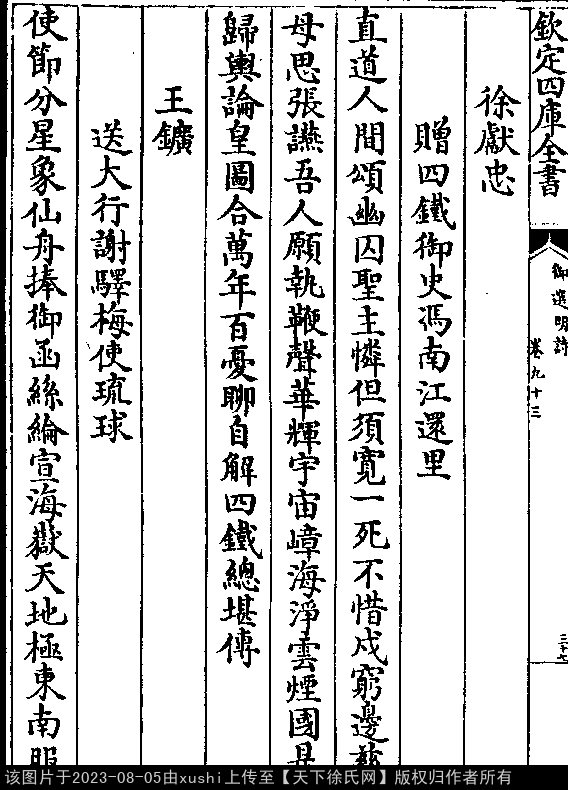 欽定四庫全書
御選明詩
卷九十三
徐獻忠
贈四鐵御史馮南江還里
直道人間頌幽囚聖主憐但須寛一死不惜戍窮邊
母思張讌吾人願執鞭聲華輝宇宙嶂海淨雲煙國
歸輿論皇圖合萬年百憂聊自解四鐵總堪傳
王鑛
送大行謝驛梅使琉球
使節分星象仙舟捧御函絲綸宣海嶽天地極東南
该图片于2023-08-05由xushi上传至【天下徐氏网】版权归作者所有